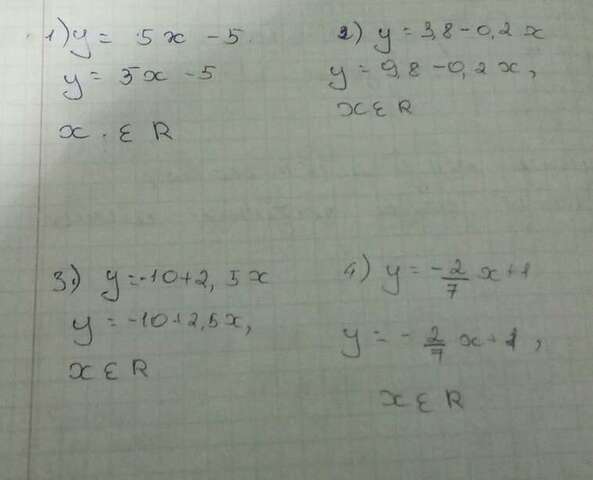 1) y = 5x - 5
y = 5x - 5
x ∈ R
2) y = 3,8 - 0,2x
y = 9,8 - 0,2x,
x ∈ R
3) y = -10 + 2,5x
y = -10 + 2,5x,
x ∈ R
4) y = -2/7 x + 1
y = -2/7 x + 1,
x ∈ R